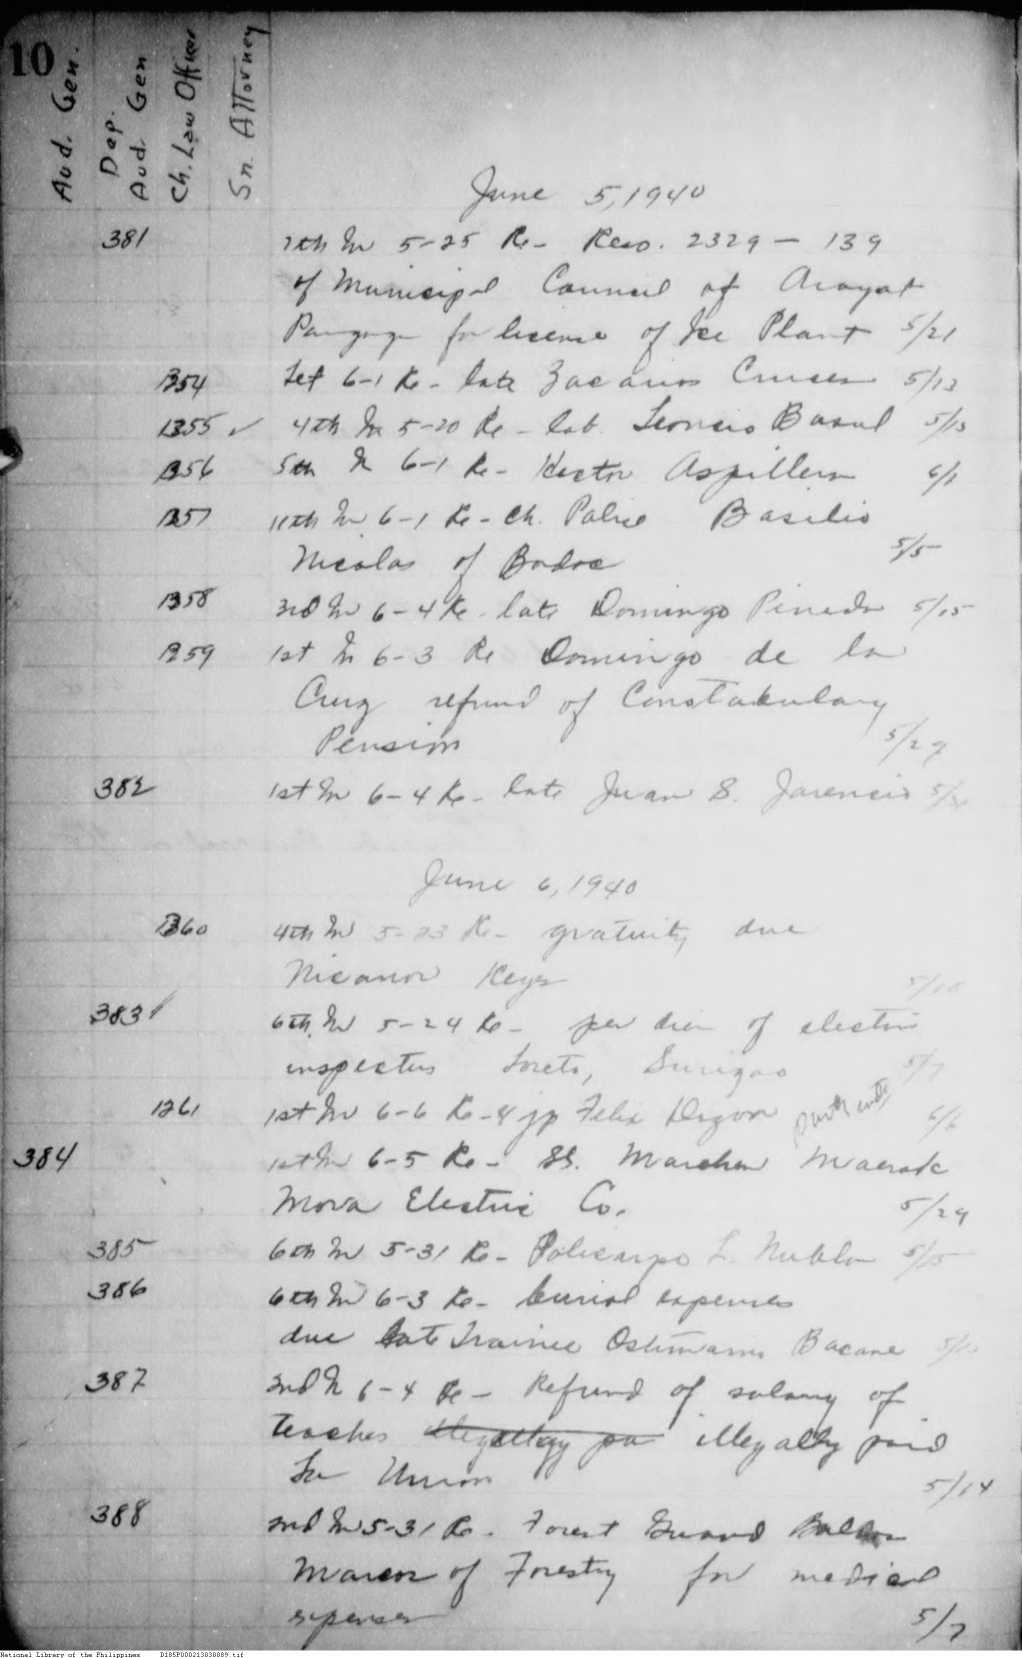 10
Aud. Gen.
Dep.
Aud. Gen
Ch. Law Officer
Sn. Attorney
June 5, 1940
381 7th In 5-25 Re- Reso. 2329 - 139
of Municipal Council of Arayat
for license of Ice Plant 5/21
1354 Let 6-1 Re- late Zacarias Cruses 5/13
1355 ✓ 4th In 5-20 Re- Leoncio Basul 5/13
1356 5th In 6-1 Re- Hector Aspillera 6/1
1357 11th In 6-1 Re- Ch. Police Basilio
Nicolas of Badoc 5/5
1358 3rd In 6-4 Re- late Domingo Pineda 5/15
1359 1st In 6-3 Re Domingo de la
Cruz refund of Constabulary
Pension 5/29
382 1st In 6-4 Re- late Juan S. Jarencio
June 6, 1940
1360 4th In 5-23 Re- gratuity due
Nicanor Reyes 5/18
383 6th In 5-24 Re- per diem of election
inspectors Loreto, Surigao 5/7
1261 1st In 6-6 Re- jp Felix Dizon 6/6
384 1st In 6-5 Re-
Mora Electric Co. 5/29
385 6th In 5-31 Re- Policarpo L. Nubla 5/15
386 6th In 6-3 Re- burial expenses
due late Trainee Bacane
387 2nd In 6-4 Re- Refund of salary of
teacher illegally paid
La Union 5/14
388 2nd In 5-31 Re- Forest Guard
of Forestry for medical
expenses 5/7
National Library of the Philippines D185P000213838089.tif